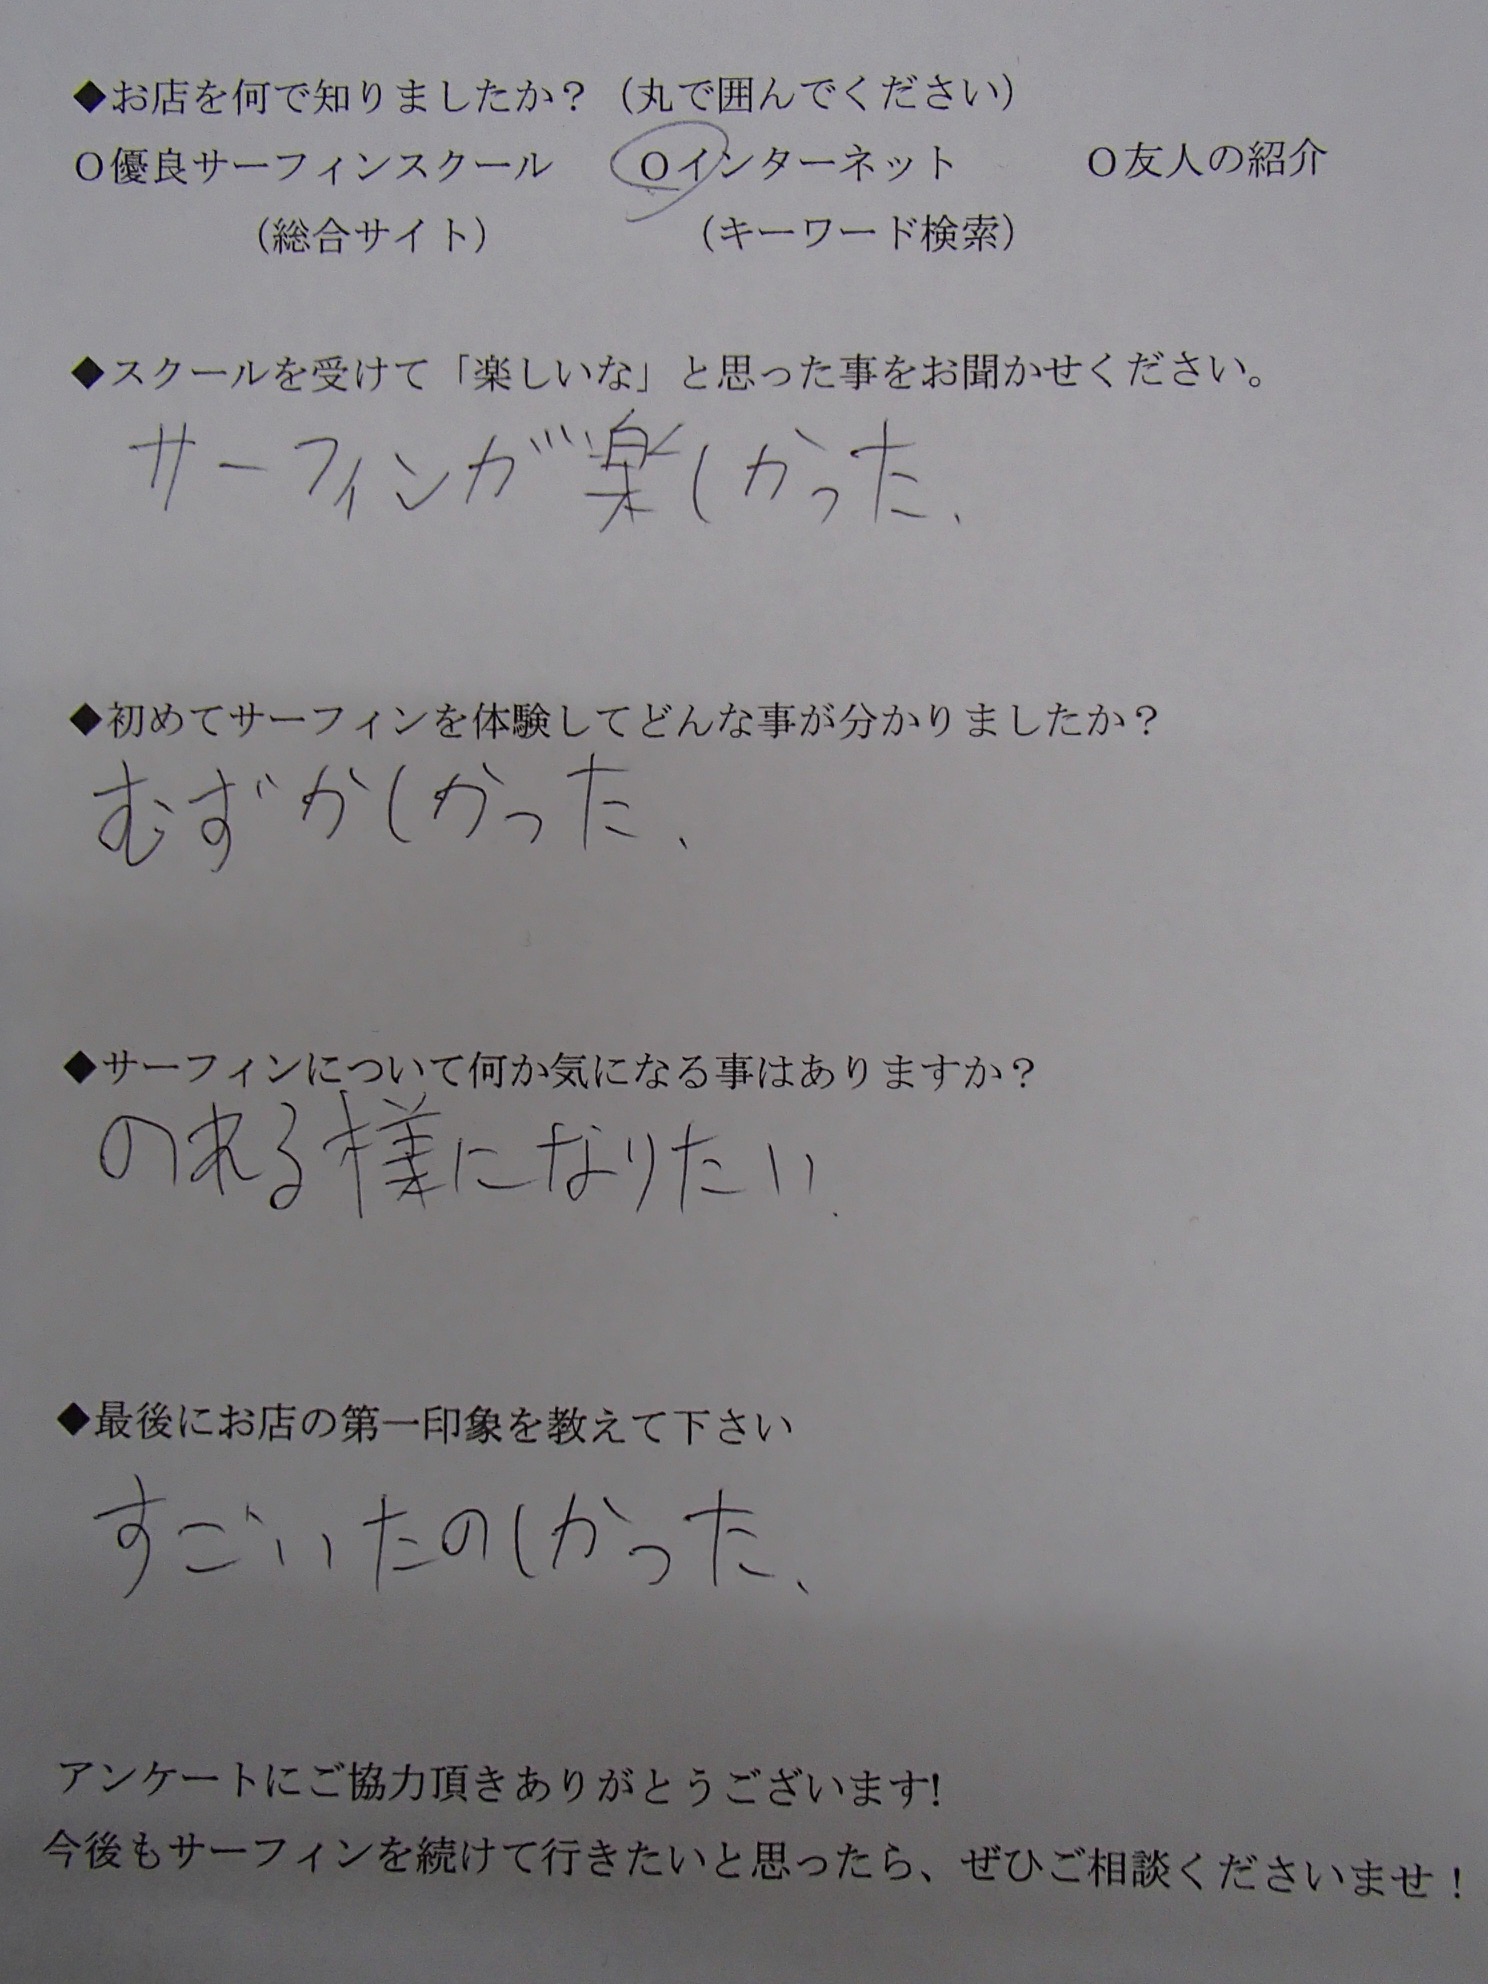 ◆お店を何で知りましたか？（丸で囲んでください）
O優良サーフィンスクール　Oインターネット　O友人の紹介
（総合サイト）　（キーワード検索）
◆スクールを受けて「楽しいな」と思った事をお聞かせください。
サーフィンが楽しかった、
◆初めてサーフィンを体験してどんな事が分かりましたか？
むずかしかった、
◆サーフィンについて何か気になる事はありますか？
のれる様になりたい.
◆最後にお店の第一印象を教えて下さい
すごいたのしかった、
アンケートにご協力頂きありがとうございます!
今後もサーフィンを続けて行きたいと思ったら、ぜひご相談くださいませ！